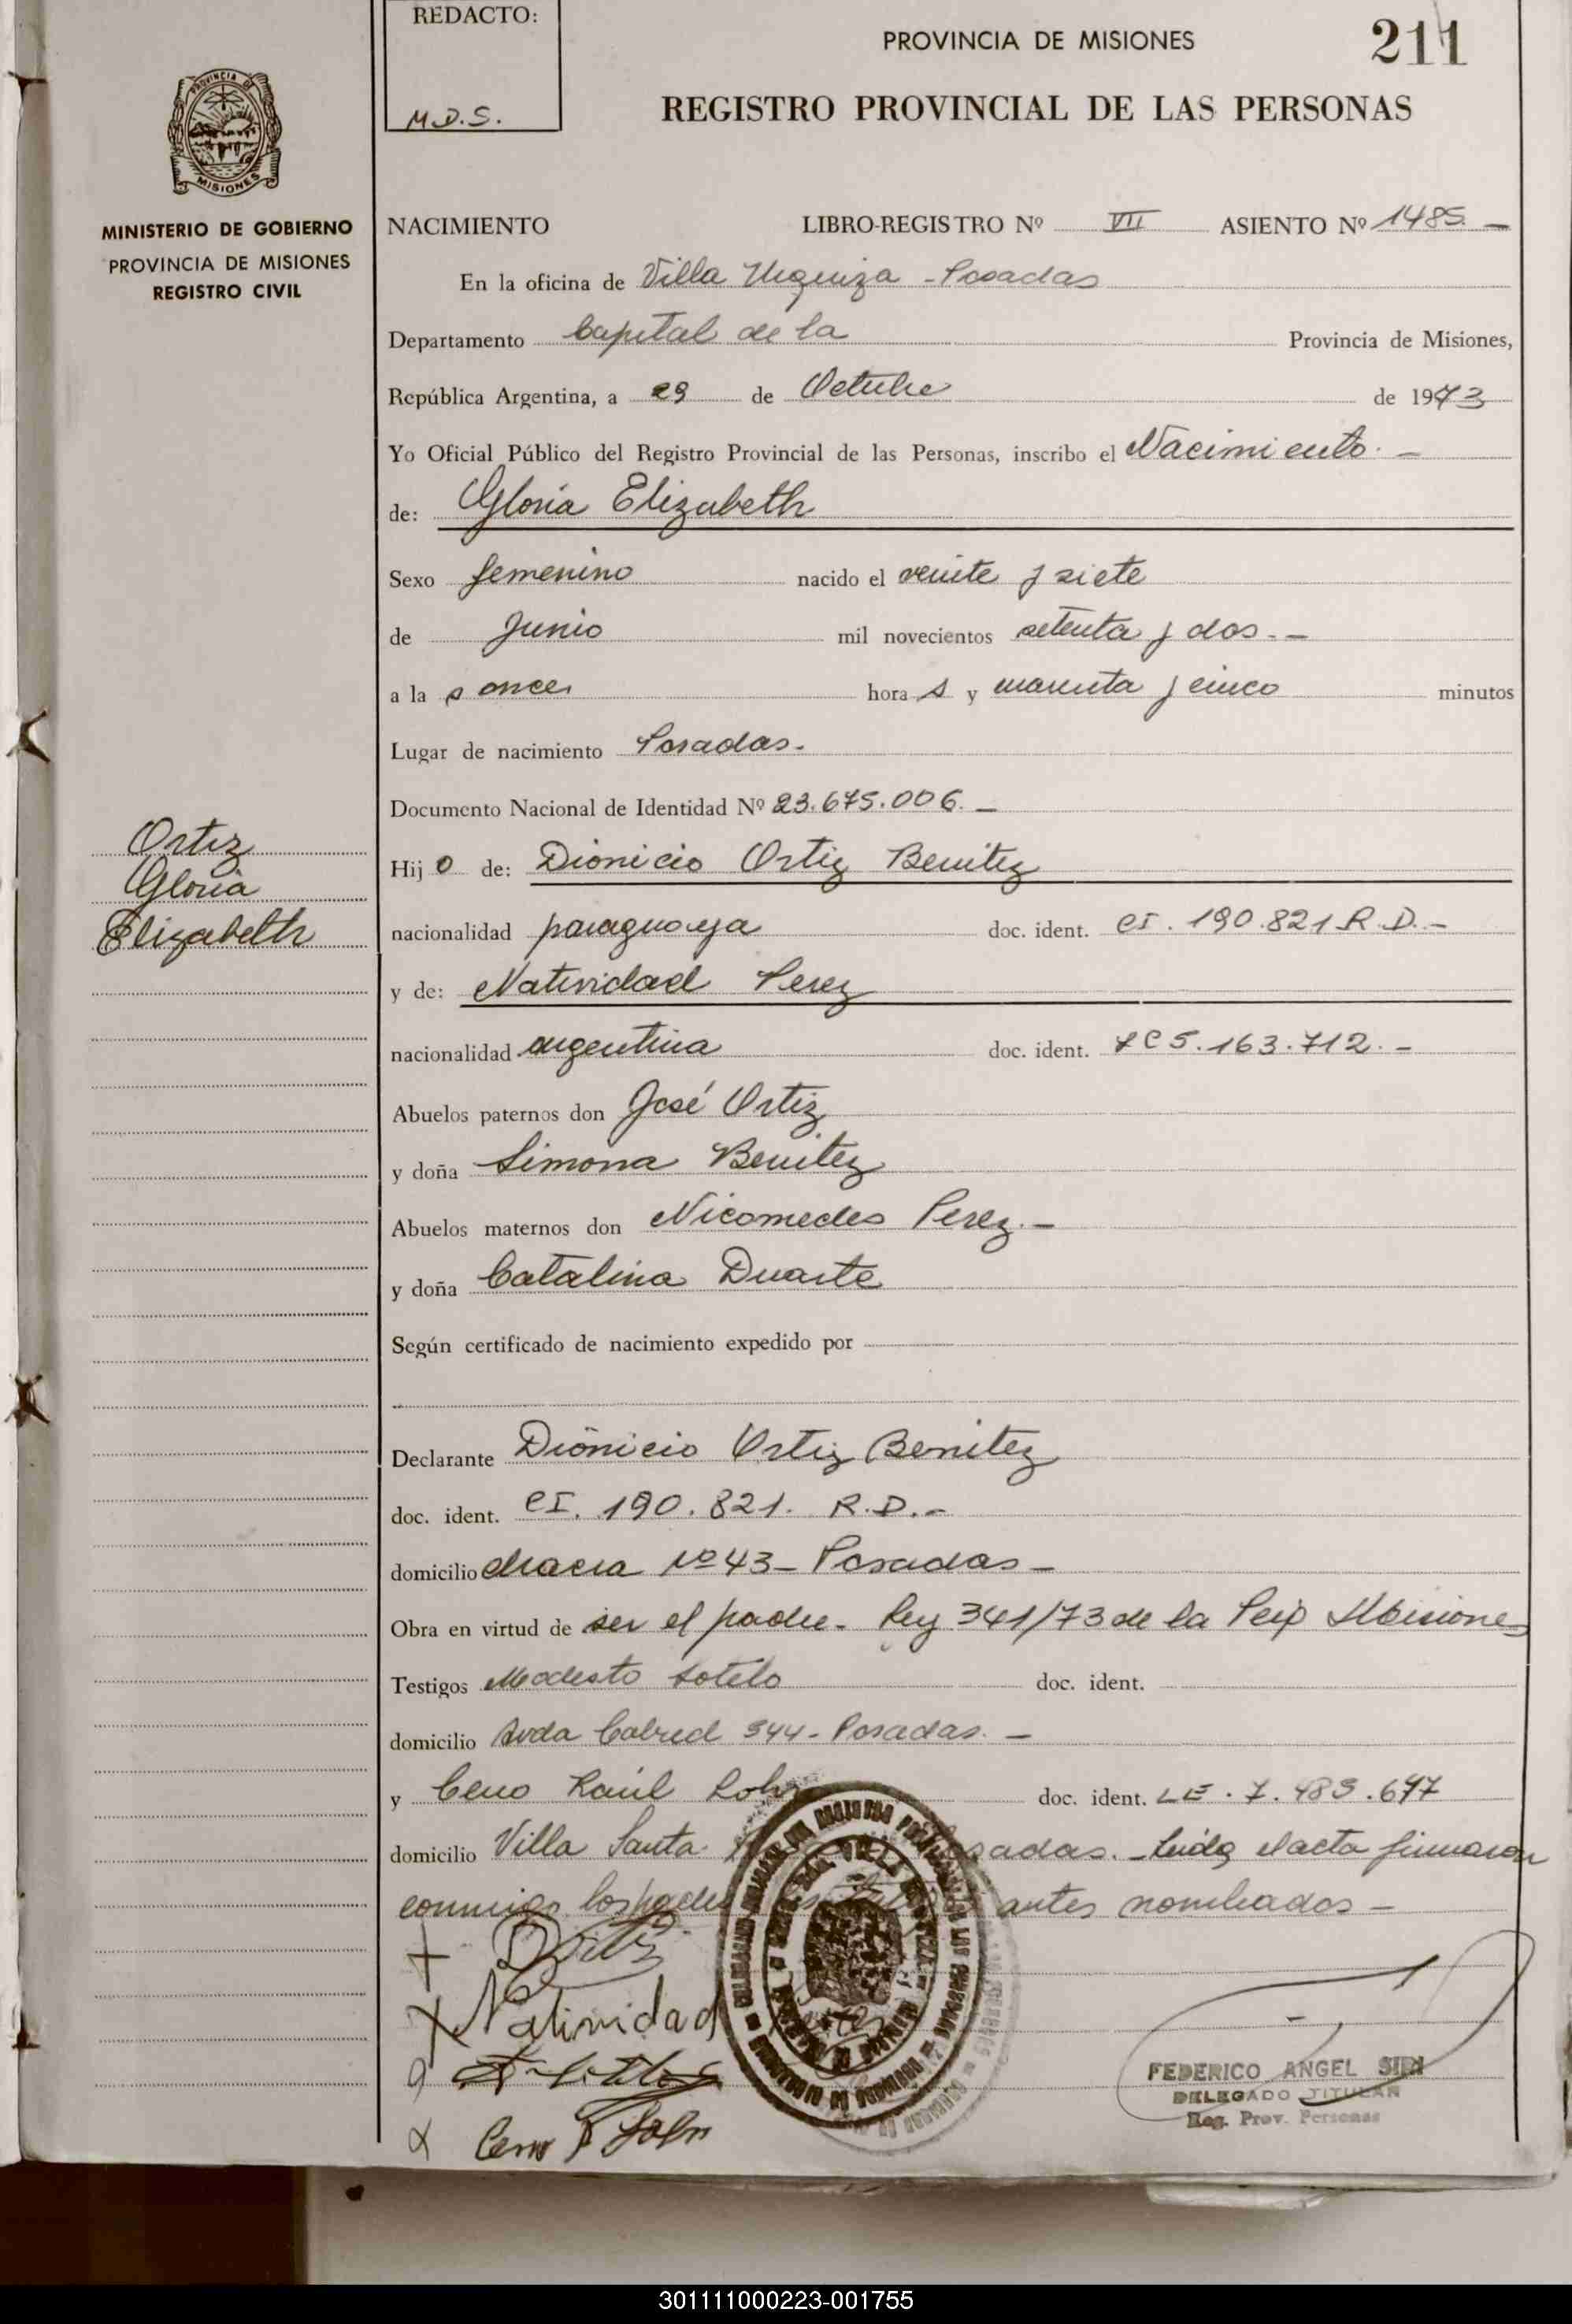 REDACTO:
M.D.S.
PROVINCIA DE MISIONES
211
REGISTRO PROVINCIAL DE LAS PERSONAS
PROVINCIA DE
MISIONES
MINISTERIO DE GOBIERNO
PROVINCIA DE MISIONES
REGISTRO CIVIL
NACIMIENTO LIBRO-REGISTRO Nº VII ASIENTO Nº 1485.-
En la oficina de Villa Urquiza - Posadas
Departamento Capital de la Provincia de Misiones,
República Argentina, a 29 de Octubre de 1973
Yo Oficial Público del Registro Provincial de las Personas, inscribo el Nacimiento.-
de: Gloria Elizabeth
Sexo femenino nacido el veinte y siete
de Junio mil novecientos setenta y dos.-
a la s once hora s y cuarenta y cinco minutos
Lugar de nacimiento Posadas.
Documento Nacional de Identidad Nº 23.675.006.-
Ortiz
Gloria
Elizabeth
Hij o de: Dionicio Ortiz Benitez
nacionalidad paraguaya doc. ident. CI. 190.821 R.D.-
y de: Natividad Perez
nacionalidad argentina doc. ident. LC 5.163.712.-
Abuelos paternos don José Ortiz
y doña Simona Benitez
Abuelos maternos don Nicomedes Perez.-
y doña Catalina Duarte
Según certificado de nacimiento expedido por
Declarante Dionicio Ortiz Benitez
doc. ident. CI. 190.821. R.D.-
domicilio chacra Nº 43 - Posadas -
Obra en virtud de ser el padre. Ley 341/73 de la Misiones
Testigos Modesto Sotelo doc. ident.
domicilio Avda Cabred 344 - Posadas.-
y Raúl doc. ident. LE. 7.483.647
domicilio Villa Santa Posadas.- Leida el acta firmaron
conmigo los padres antes nombrados -
Ortiz
Natividad
FEDERICO ANGEL SIRI
DELEGADO TITULAR
Reg. Prov. Personas
301111000223-001755